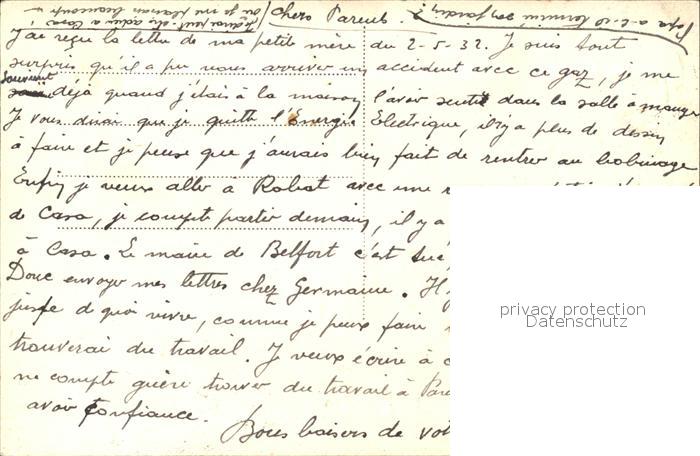 Papa a-t-il terminé son jardin ?
Chers Parents,
J'ai reçu la lettre de ma petite mère du 2-5-32. Je suis tout
surpris qu'il a pu vous arriver un accident avec ce gaz, je me
souvient déjà quand j'étais à la maison l'avoir senti dans la salle à manger
Je vous dirai que je quitte l'Energie Electrique, il n'y a plus de dessin
à faire et je pense que j'aurais bien fait de rentrer au bobinage
Enfin je veux aller à Rabat avec une
de Casa, je compte partir demain, il y a
à Casa. Le maire de Belfort c'est tué,
Donc envoyer mes lettres chez Germaine.
juste de quoi vivre, comme je peux faire
trouverai du travail. Je veux écrire à
ne compte guère trouver du travail à
avoir confiance.
Bons baisers de
privacy protection
Datenschutz